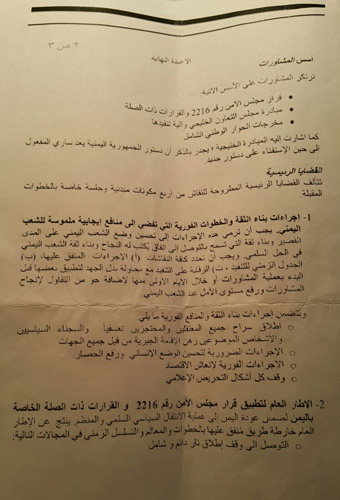 ٢ من ٣
الأجندة النهائية
أسس المشاورات
ترتكز المشاورات على الأسس الآتية:
• قرار مجلس الأمن رقم 2216 والقرارات ذات الصلة
• مبادرة مجلس التعاون الخليجي وآلية تنفيذها
• مخرجات الحوار الوطني الشامل
كما اشارت إليه المبادرة الخليجية، يجدر بالذكر أن دستور الجمهورية اليمنية يعد ساري المفعول
إلى حين الإستفتاء على دستور جديد.
القضايا الرئيسية
تتألف القضايا الرئيسية المطروحة للنقاش من اربع مكونات مبدئية وجلسة خاصة بالخطوات
المقبلة
1- إجراءات بناء الثقة والخطوات الفورية التي تفضي الى منافع إيجابية ملموسة للشعب
اليمني. يجب أن ترمي هذه الإجراءات إلى تحسين وضع الشعب اليمني على المدى
القصير وبناء ثقة التي تسمح بالتوصل إلى اتفاق يكتب له النجاح وبناء ثقة الشعب اليمني
في الحل السلمي. ويجب أن تحدد كافة النقاشات (أ) الإجراءات المتفق عليها، (ب)
الجدول الزمني للتنفيذ، ت) الرقابة على التنفيذ مع محاولة بذل الجهد لتطبيق بعضها قبل
البدء بعملية المشاورات او خلال الايام الاولى منها لاضافة جو من التفاؤل لإنجاح
المشاورات ورفع مستوى الأمل عند الشعب اليمني.
وتتضمن إجراءات بناء الثقة والمنافع الفورية ما يلي:
o إطلاق سراح جميع المعتقلين والمحتجزين تعسفياً والسجناء السياسيين
والاشخاص الموضوعين رهن الإقامة الجبرية من قبل جميع الجهات
o الإجراءات الضرورية لتحسين الوضع الإنساني ورفع الحصار
o الإجراءات الفورية لانعاش الاقتصاد
o وقف كل أشكال التحريض الإعلامي
2- الإطار العام لتطبيق قرار مجلس الأمن رقم 2216 و القرارات ذات الصلة الخاصة
باليمن لضمان عودة اليمن الى عملية الانتقال السياسي السلمي والمنظم. ينتج عن الإطار
العام خارطة طريق متفق عليها بالخطوات والمعالم والتسلسل الزمني في المجالات التالية:
o التوصل الى وقف إطلاق نار دائم و شامل